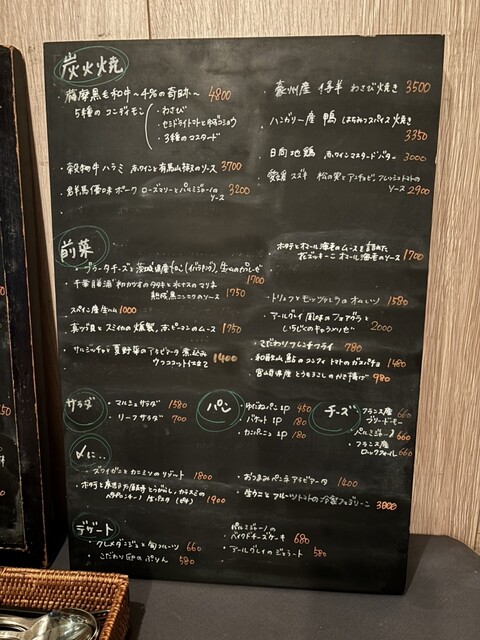 炭火焼
薩摩黒毛和牛 〜4%の奇跡〜 4800
5種のコンディモン
・わさび
・セミドライトマトとゆずコショウ
・3種のマスタード
・穀物牛ハラミ 赤ワインと有馬山椒のソース 3700
・群馬優味ポーク ローズマリーとパルミジャーノの
ソース 3200
・豪州産 仔羊 わさび焼き 3500
・ハンガリー産 鴨 はちみつスパイス焼き
3350
・日向地鶏 赤ワインマスタードバター 3000
・愛媛 スズキ 松の実とアンチョビ、フレッシュトマトの
ソース 2900
前菜
・ブラータチーズと茨城県産メロン
千葉県勝浦 初カツオのタタキと水ナスのマリネ
熟成黒ニンニクのソース 1750
・スペイン産生ハム 1000
・真つぶ貝とスミイカの燻製、赤ピーマンのムース 1750
・サルシッチャと夏野菜のアラビアータ煮込み
ココット仕立て 1400
・ホタテとオマール海老のムースを詰めた
花ズッキーニ オマール海老のソース 1700
・トリュフとモッツァレラのオムレツ 1580
・アールグレイ風味のフォアグラと
いちじくのキャラメリゼ 2000
・こだわりフレンチフライ 780
・和歌山 鮎のコンフィ トマトのガスパチョ 1480
・宮崎県産とうもろこしのかき揚げ 980
サラダ
・マルシェサラダ 1580
・リーフサラダ 700
パン
・ゆびねパン 2P 450
・バゲット 1P 180
・カンパーニュ 1P 180
チーズ
・フランス産 660
ブリードモー
・パルミジャーノ 660
・フランス産
ロックフォール 660
〆に…
・ズワイガニとカニミソのリゾット 1800
・おつまみペンネアラビアータ 1400
・生ウニとフルーツトマトの冷製フェデリーニ 3800
デザート
・クレメダンジュと旬フルーツ 660
・こだわり卵のぷりん 580
・パルミジャーノの
ベイクドチーズケーキ 680
・アールグレイのジェラート 580